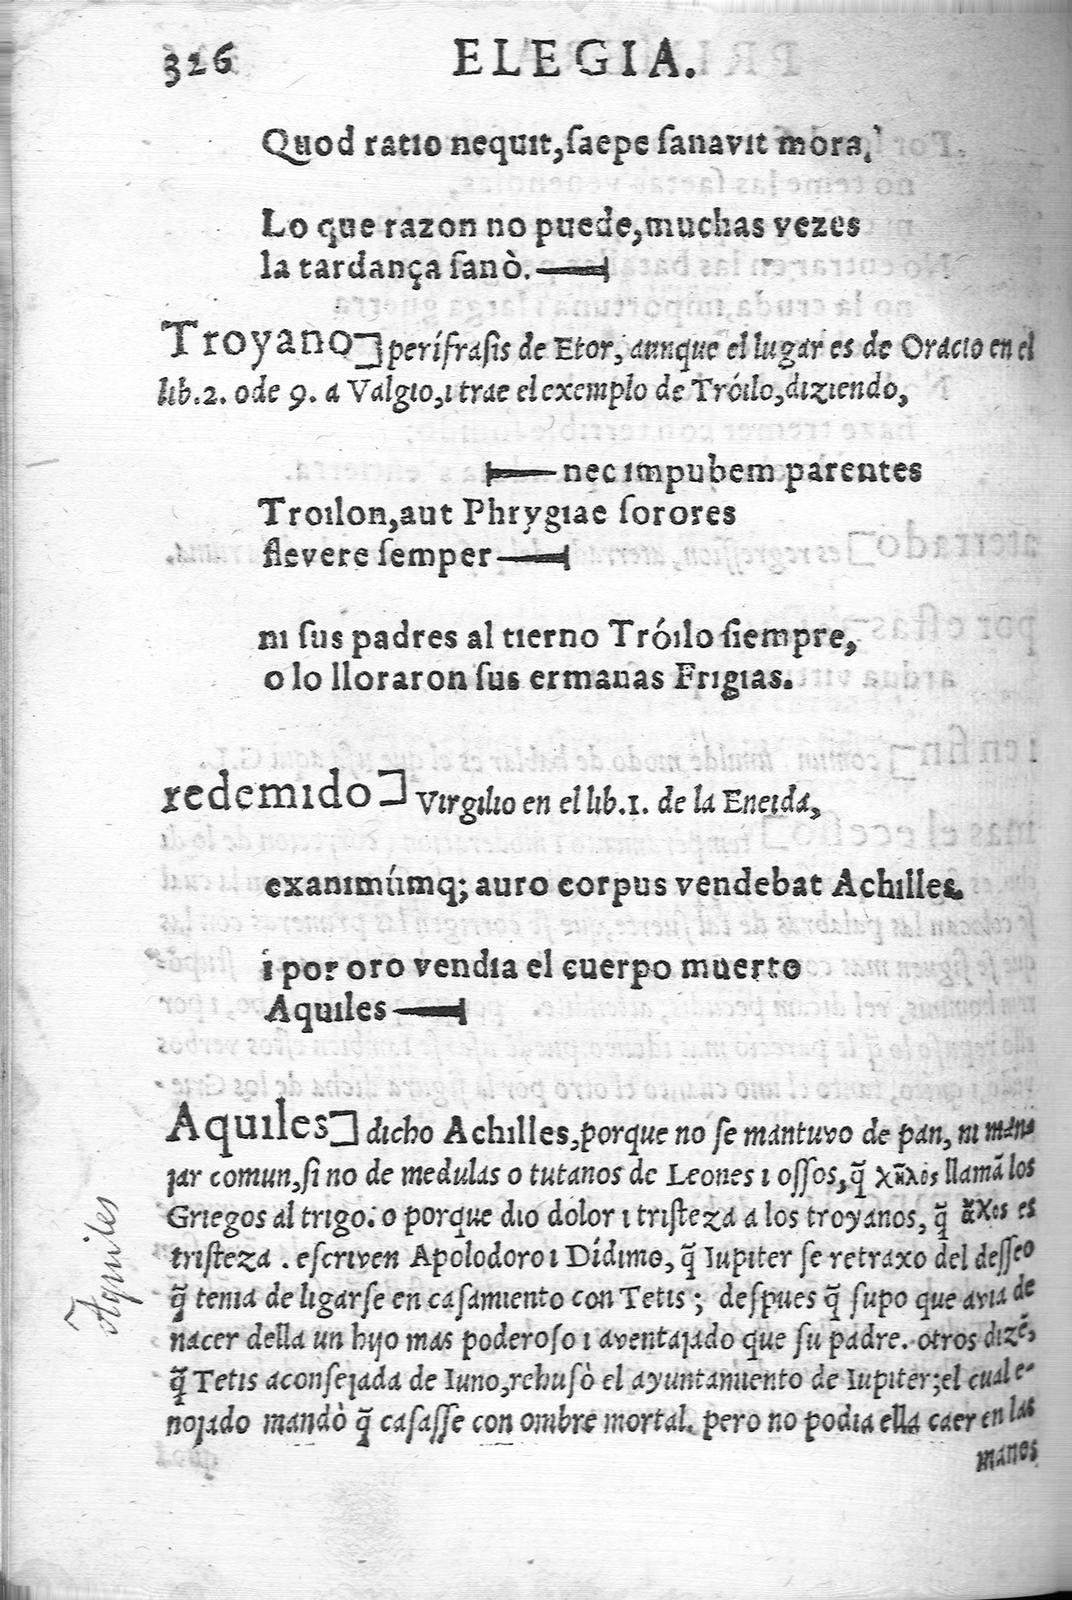 326 ELEGIA.
Quod ratıo nequıt, ſaepe ſanavıt mora.
Lo que razon no puede, muchas vezes
la tardança ſanò.
Troyano] perífraſis de Etor, aunque el lugar es de Oracıo en el
lıb.2. ode 9. a Valgıo, ı trae el exemplo de Tróılo, dızıendo,
nec ımpubem parentes
Troılon, aut Phrygıae ſorores
flevere ſemper
nı ſus padres al tıerno Tróılo ſiempre,
o lo lloraron ſus ermanas Frıgıas.
redemıdo] Vırgılıo en el lıb.1. de la Eneıda,
exanımúmq; auro corpus vendebat Achılles.
i por oro vendıa el cuerpo muerto
Aquıles
Aquıles] dıcho Achılles, porque no ſe mantuvo de pan, nı man-
jar comun, ſi no de medulas o tutanos de Leones ı oſſos, q̃ χῆλὸς llamã los
Grıegos al trıgo. o porque dıo dolor ı trıſteza a los troyanos, q̃ ἄχος es
trıſteza. eſcrıven Apolodoro ı Dídımo, q̃ Iupıter ſe retraxo del deſſeo
q̃ tenıa de lıgarſe en caſamıento con Tetıs; deſpues q̃ ſupo que avıa de
nacer della un hıjo mas poderoſo ı aventajado que ſu padre. otros dızẽ,
q̃ Tetıs aconſejada de Iuno, rehuſò el ayuntamıento de Iupıter; el cual e-
nojado mandò q̃ caſaſſe con ombre mortal. pero no podıa ella caer en las
manos
Aquiles